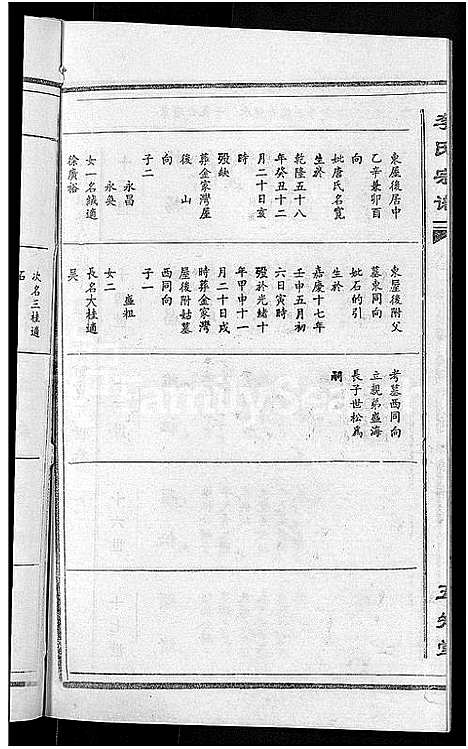 李氏宗譜
東屋後居中
乙辛兼卯酉
向
妣唐氏名寬
生於
乾隆五十八
年癸丑十二
月二十日亥
時
殁缺
葬金家灣屋
後山
向
子二
永昌
永奐
女一名緘適
徐廣裕
東屋後附父
墓東同向
妣石的引
生於
嘉慶十七年
壬申五月初
六日寅時
殁於光緒十
年甲申十一
月二十日戌
時葬金家灣
屋後附姑墓
西同向
子一
盛祖
女二
長名大桂適
吴
次名三桂適
石
考墓西同向
立親弟盛海
長子世松為
嗣
十六世
十七世